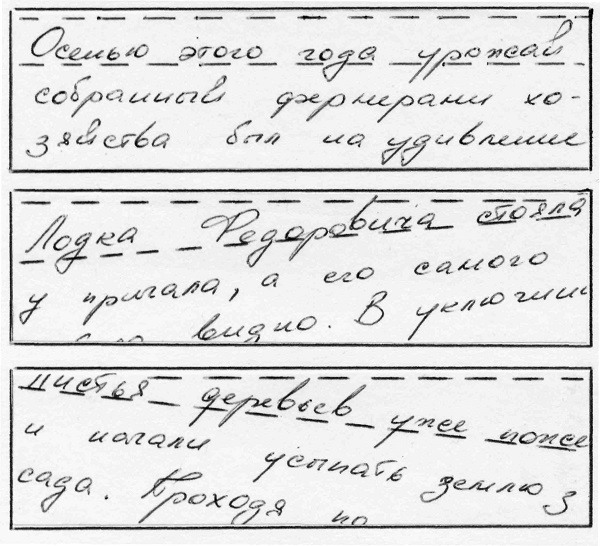 Осенью этого года урожай
собранный фермерами хо-
зяйства был на удивление
Лодка Федоровича стояла
у причала, а его самого
видно. В уключин
листья деревьев уже пожел
и начали усыпать землю з
сада. Проходя по